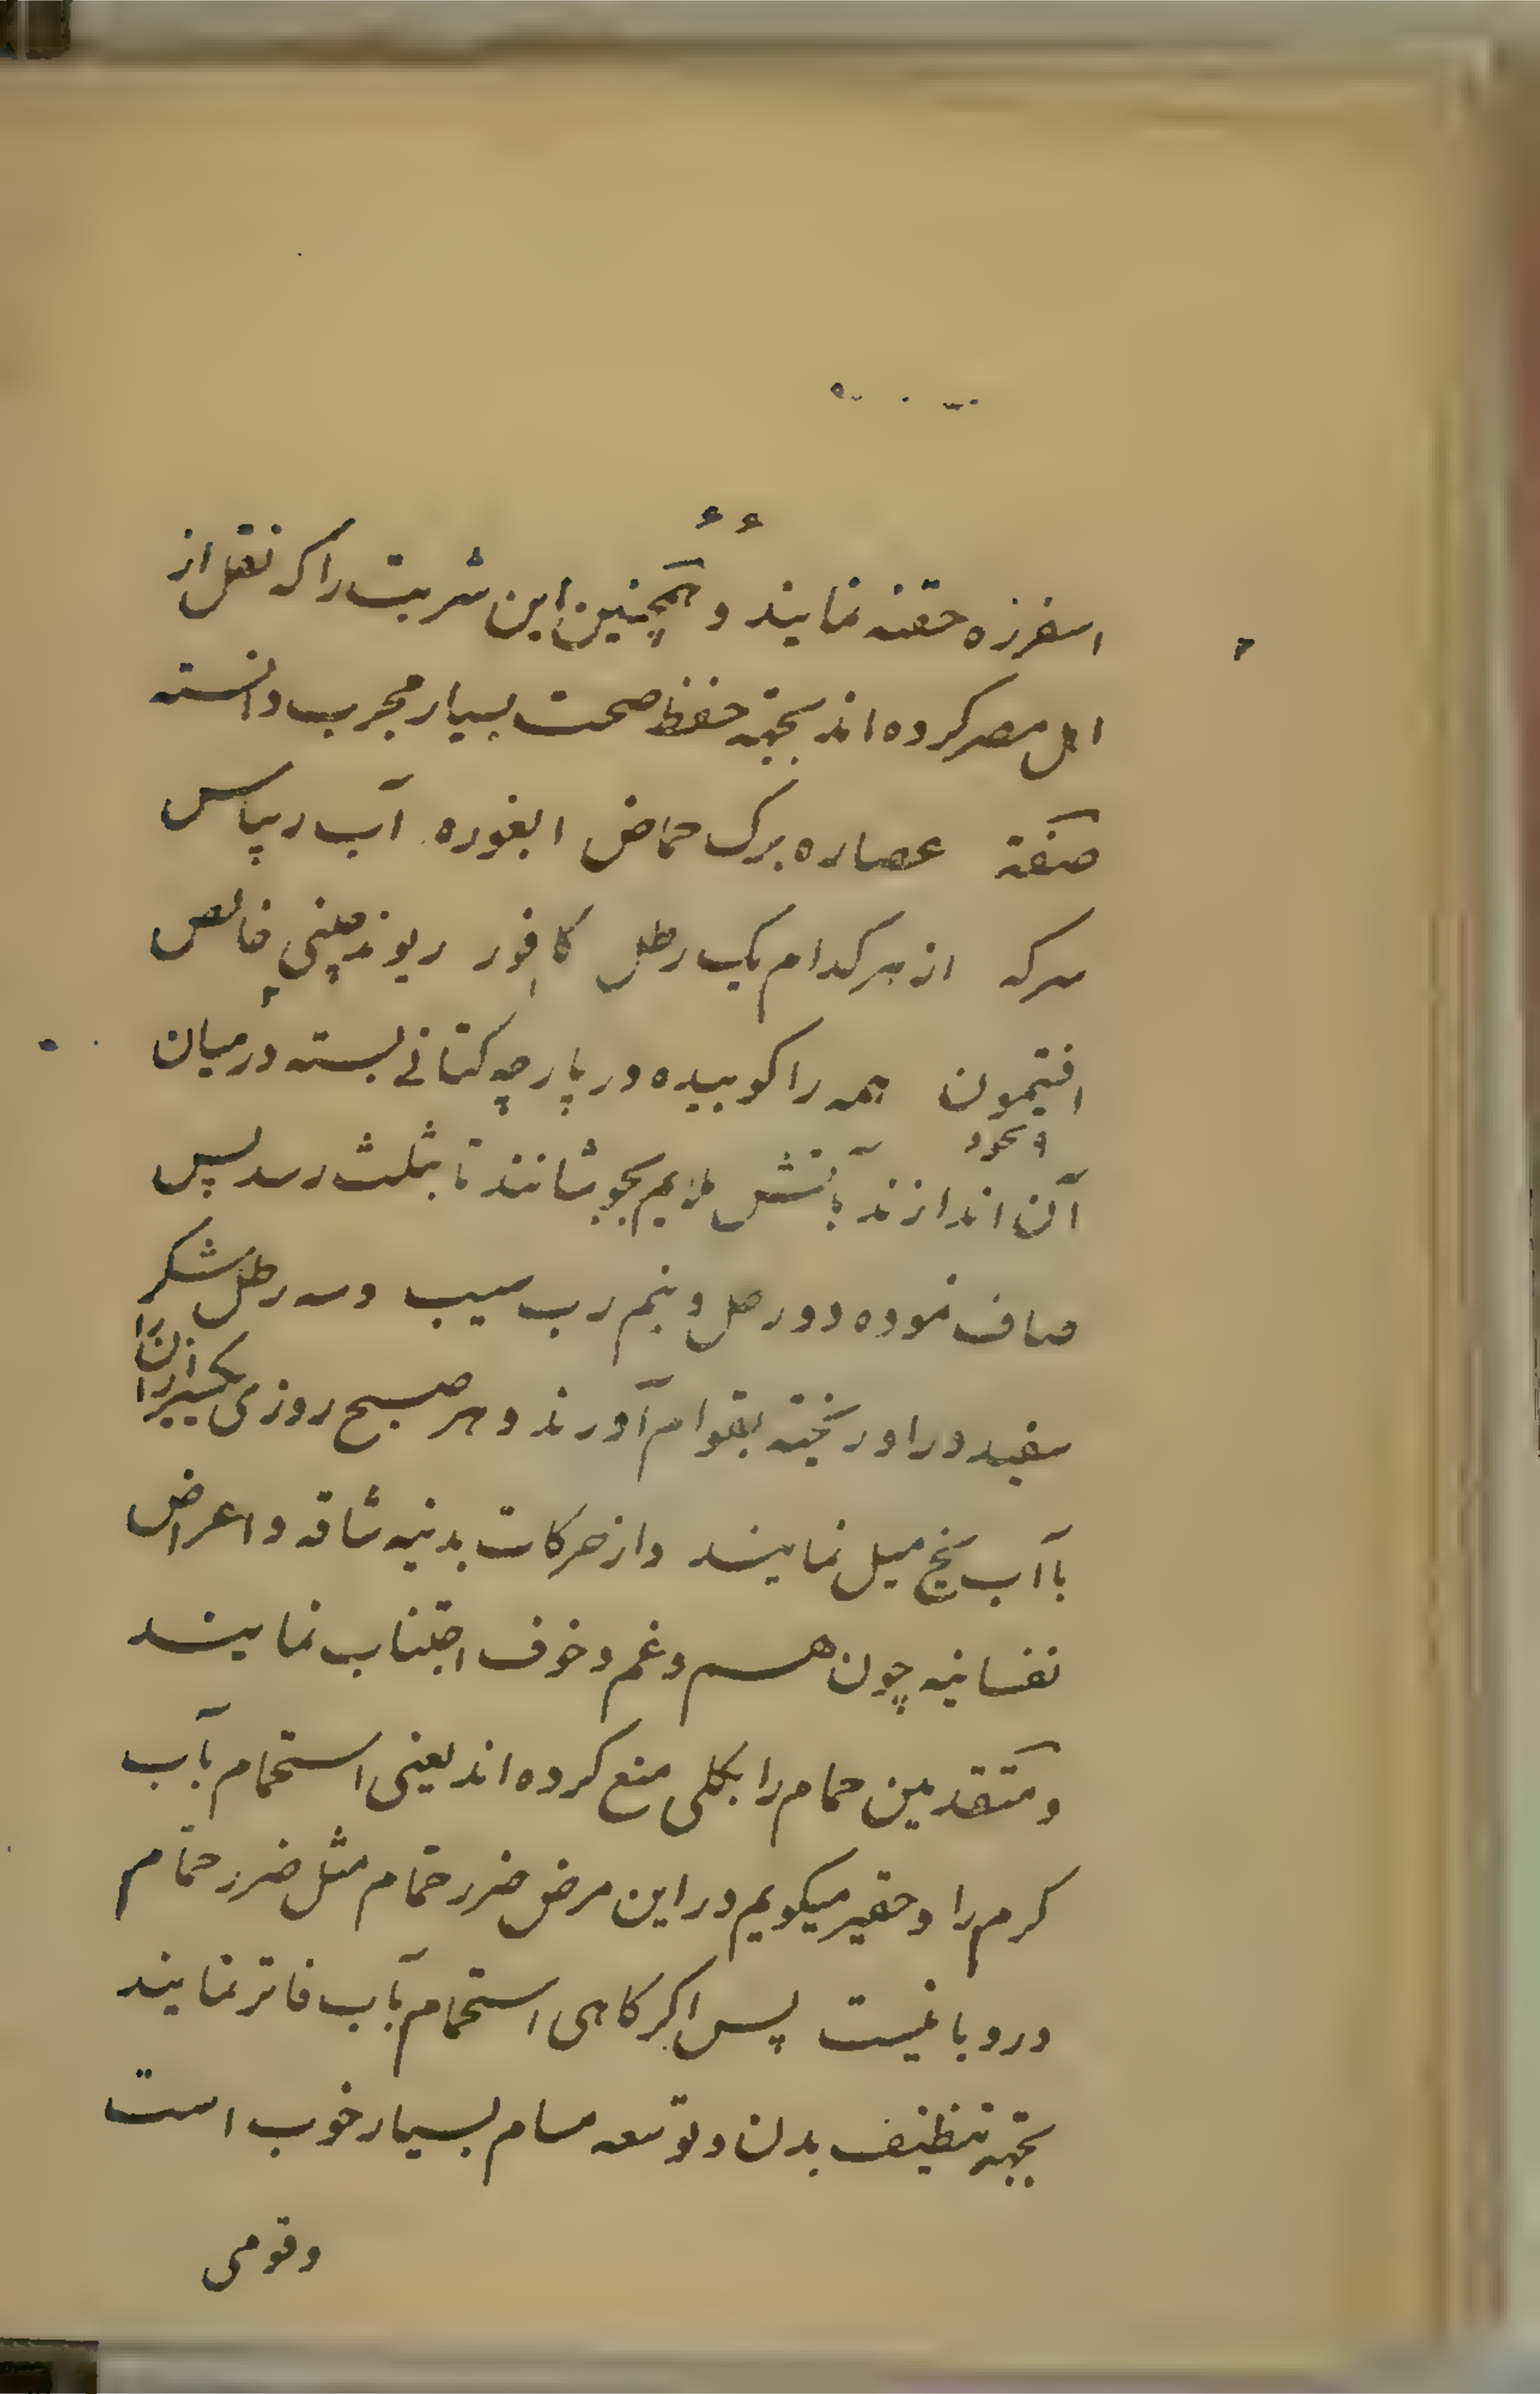 اسفرزه حقنه نمایند و همچنین این شربت را که نقل از
اهل مصر کرده اند بجهته حفظ صحت بسیار مجرب دانسته
صفته عصاره برک حماض ابغوره آب ریباس
سرکه از هر کدام یک رطل کافور ریوند چینی خالص
افتیمون همه را کوبیده در پارچه کتانی بسته در میان
آن اندازند بآتش ملایم بجوشانند تا بثلث رسد پس
صاف نموده دو رطل و نیم رب سیب و سه رطل شکر
سفید در او ریخته بقوام آورند و هر صبح روزی یکسیر از آن را
با آب یخ میل نمایند و از حرکات بدنیه شاقه و اعراض
نفسانیه چون هم و غم و خوف اجتناب نمایند
و متقدمین حمام را بکلی منع کرده اند یعنی استحمام بآب
کرم را و حقیر میکویم در این مرض ضرر حمام مثل ضرر حمام
در وبا نیست پس اکر کاهی استحمام بآب فاتر نمایند
بجهته تنظیف بدن و توسعه مسام بسیار خوب است
وقومی